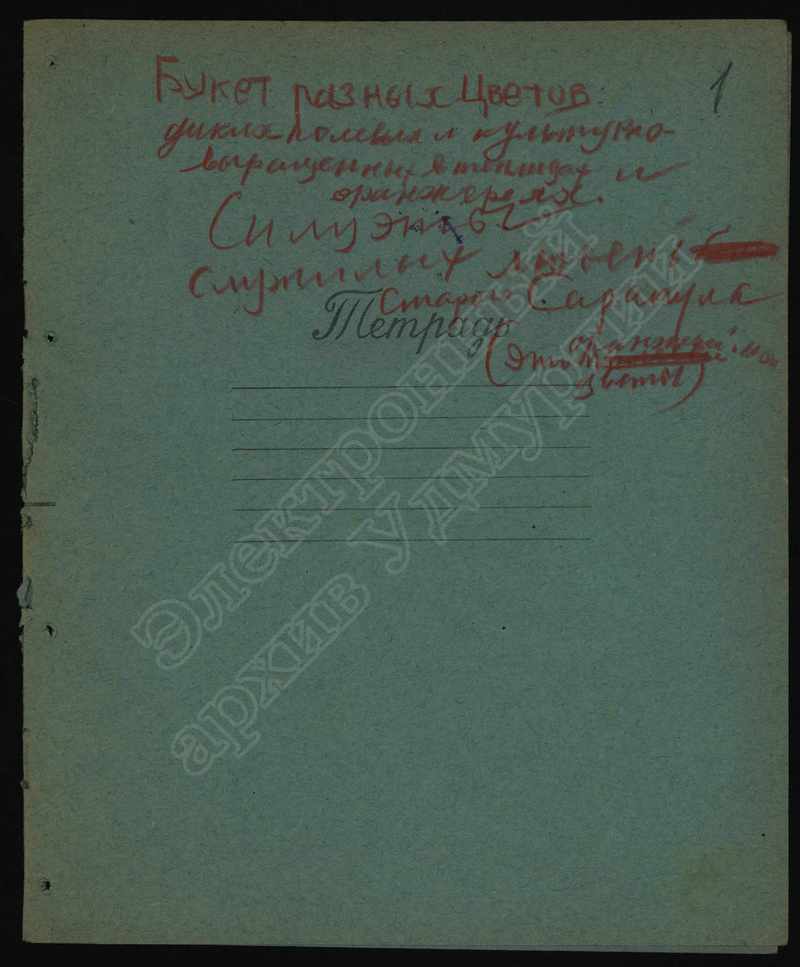 1
Букет разных Цветов
диких полевых и культурно-
выращенных в теплицах и
оранжереях.
Силуэты
служилых людей
Старого Сарапула
Тетрадь
(Это оранжерейные
цветы)
Электронный
архив Удмуртии